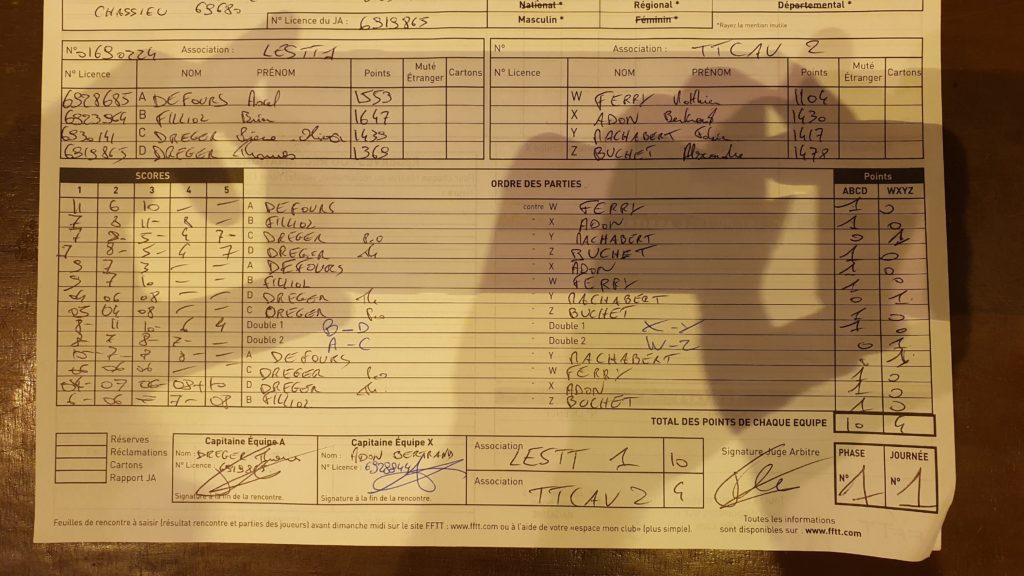 CHASSIEU 69680
N° Licence du JA : 6919865
National * Régional * Départemental *
Masculin * Féminin *
*Rayez la mention inutile
N° 01690224 Association : LESTT 1
N° Association : TTCAV 2
N° Licence NOM PRÉNOM Points Muté Étranger Cartons
N° Licence NOM PRÉNOM Points Muté Étranger Cartons
6928685 A DEFOURS Axel 1553
W FERRY 1104
B FILLIOL 1647
X ADON Bertrand 1430
C DREGER 1439
Y MACHABERT 1417
6919865 D DREGER Thomas 1369
Z BUCHET Alexandre 1478
SCORES ORDRE DES PARTIES Points
1 2 3 4 5 ABCD WXYZ
11 6 10 - - A DEFOURS contre W FERRY 1 0
B FILLIOL " X ADON 1 0
7 8- 5- 4 7- C DREGER " Y MACHABERT 0 1
7 8- 5- 4 7 D DREGER " Z BUCHET 1 0
9 7 3 - - A DEFOURS " X ADON 1 0
9 7 10 - - B FILLIOL " W FERRY 1 0
06 08 - - D DREGER " Y MACHABERT 0 1
05 04 08 - - C DREGER " Z BUCHET 1 0
8- 11 10- 6 4 Double 1 B-D " Double 1 X-Y 1 0
Double 2 A-C " Double 2 W-Z 0 1
A DEFOURS " Y MACHABERT
06 06 06 - - C DREGER " W FERRY 1 0
07 D DREGER " X ADON 1 0
6- 06 - 7- 08 B FILLIOL " Z BUCHET 1 0
TOTAL DES POINTS DE CHAQUE EQUIPE 10 4
Réserves
Réclamations
Cartons
Rapport JA
Capitaine Équipe A
Nom : DREGER Thomas
N° Licence : 6919865
Signature à la fin de la rencontre.
Capitaine Équipe X
Nom : ADON BERTRAND
N° Licence :
Signature à la fin de la rencontre.
Association LESTT 1 10
Association TTCAV 2 4
Signature Juge Arbitre
PHASE N° 1
JOURNÉE N° 1
Feuilles de rencontre à saisir (résultat rencontre et parties des joueurs) avant dimanche midi sur le site FFTT : www.fftt.com ou à l'aide de votre «espace mon club» (plus simple).
Toutes les informations
sont disponibles sur : www.fftt.com